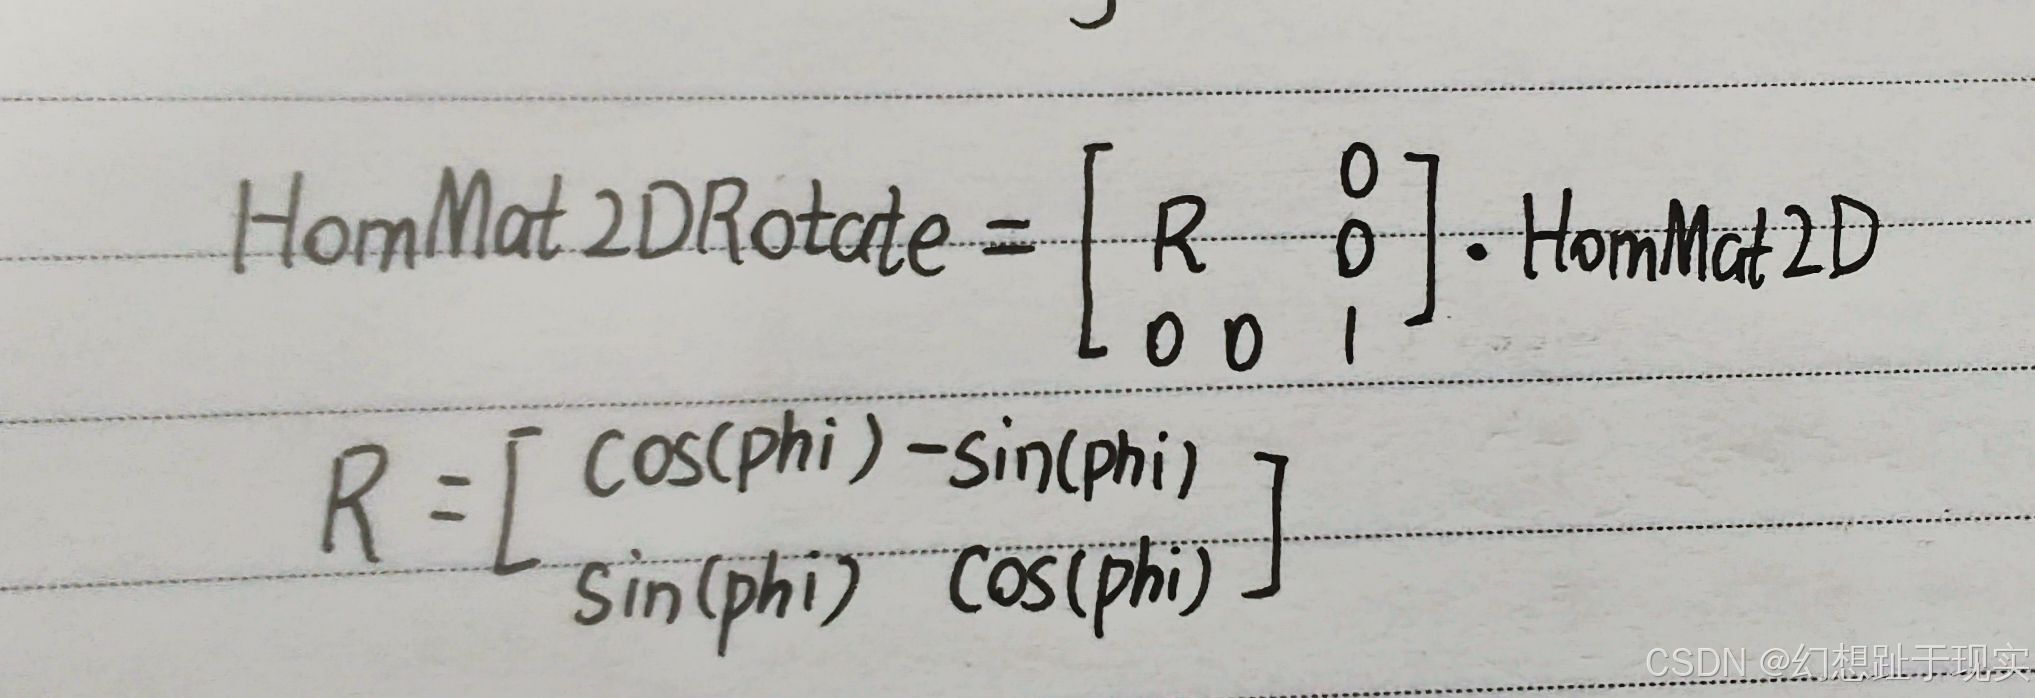 HomMat2DRotate = [ R 0 0 0 0 1 ] · HomMat2D
R = [ cos(phi) -sin(phi)
sin(phi) cos(phi) ]
CSDN @幻想趾于现实